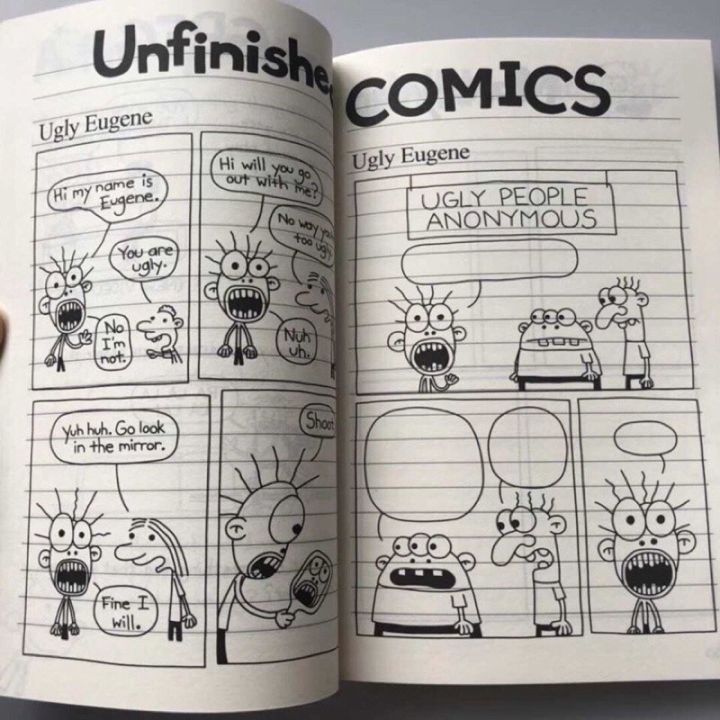 Unfinished
COMICS
Ugly Eugene
Hi my name is
Eugene.
You are
ugly.
No
I'm
not.
Hi will you go
out with me?
No way
too ugly
Nuh
uh.
Yuh huh. Go look
in the mirror.
Fine I
will.
Shoot
Ugly Eugene
UGLY PEOPLE
ANONYMOUS